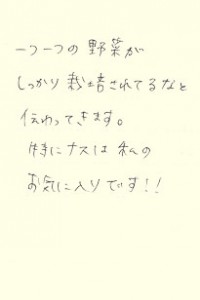 一つ一つの野菜が
しっかり栽培されてるなと
伝わってきます。
特にナスは私の
お気に入りです!!